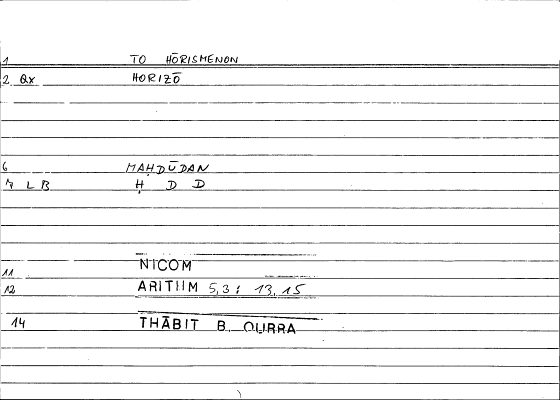 1 TO HŌRISMENON
2 Qx HORIZŌ
6 MAḤDŪDAN
7 L B Ḥ D D
11 NICOM
12 ARITHM 5,3 : 13,15
14 THĀBIT B. QURRA